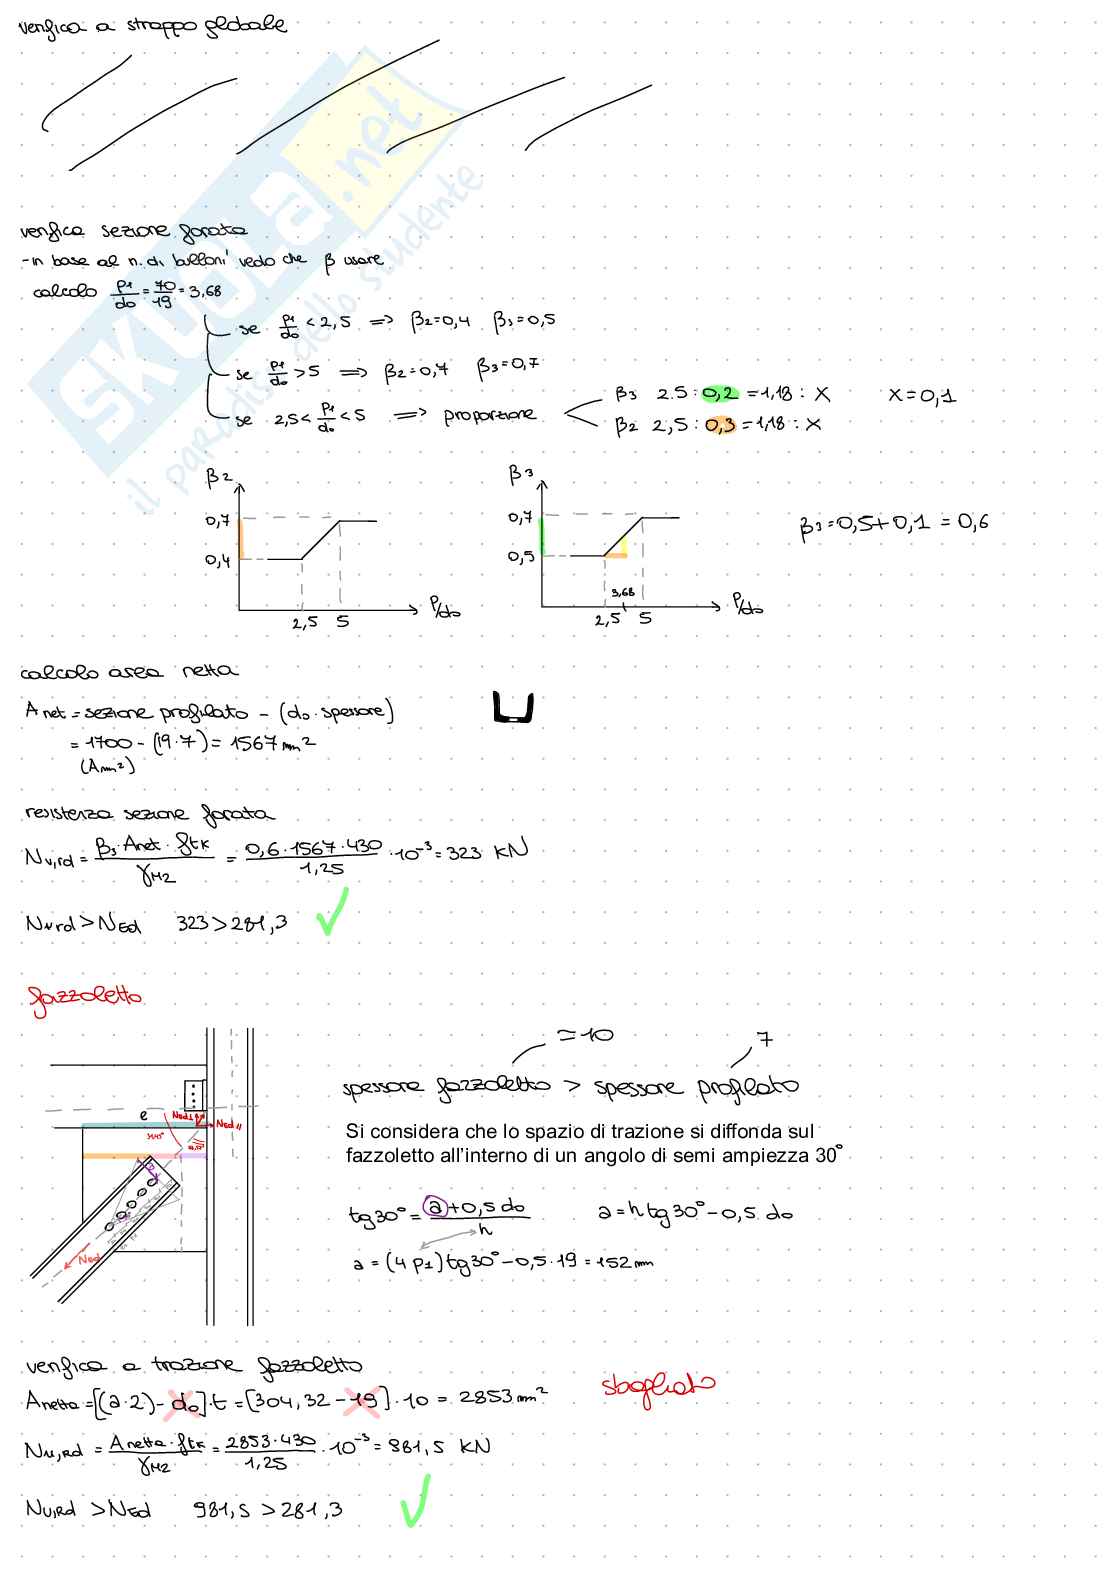 verifica a strappo globale
SKUOLA.net
il paradiso dello studente
verifica sezione forata
- in base al n. di bulloni vedo che β usare
calcolo p1/d0 = 70/19 = 3,68
se p1/d0 < 2,5 => β2=0,4 β3=0,5
se p1/d0 > 5 => β2=0,7 β3=0,7
se 2,5 < p1/d0 < 5 => proporzione
β3 2.5 : 0,2 = 1,18 : x x=0,1
β2 2,5 : 0,3 = 1,18 : x
β2
0,7
0,4
2,5 5
P/d0
β3
0,7
0,5
3,68
2,5 5
P/d0
β3=0,5+0,1 = 0,6
calcolo area netta
Anet = sezione profilato - (d0 · spessore)
= 1700 - (19·7) = 1567 mm²
(Amm²)
resistenza sezione forata
Nu,rd = β3·Anet·ftk/γM2 = 0,6·1567·430/1,25 ·10⁻³ = 323 KN
Nurd > NEd 323 > 281,3
fazzoletto
e
Ned⊥
Ned//
Ned
≃10
7
spessore fazzoletto > spessore profilato
Si considera che lo spazio di trazione si diffonda sul
fazzoletto all'interno di un angolo di semi ampiezza 30°
tg30° = a+0,5 d0/h a = h tg30° - 0,5 · d0
a = (4 p1) tg30° - 0,5 · 19 = 152 mm
verifica a trazione fazzoletto
Anetta = [(a·2) - d0]·t = [304,32 - 19]·10 = 2853 mm²
sbagliato
Nu,Rd = Anetta·ftk/γM2 = 2853·430/1,25 ·10⁻³ = 981,5 KN
Nu,Rd > NEd 981,5 > 281,3